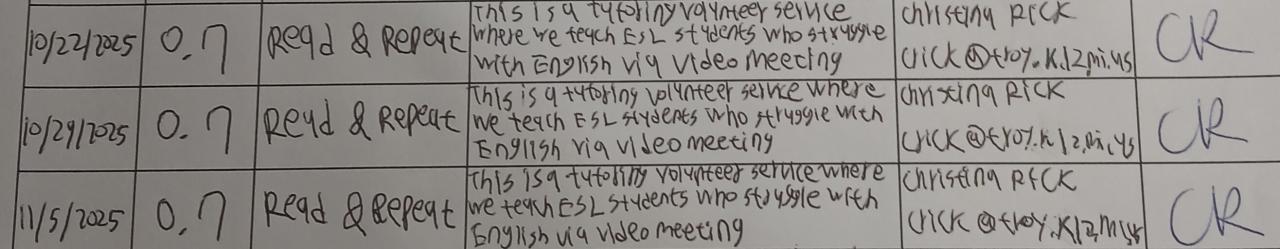 10/22/2025 0.7 Read & Repeat This is a tutoring volunteer service where we teach ESL students who struggle with English via video meeting Christina Rick crick@troy.k12.mi.us CR
10/29/2025 0.7 Read & Repeat This is a tutoring volunteer service where we teach ESL students who struggle with English via video meeting Christina Rick crick@troy.k12.mi.us CR
11/5/2025 0.7 Read & Repeat This is a tutoring volunteer service where we teach ESL students who struggle with English via video meeting Christina Rick crick@troy.k12.mi.us CR